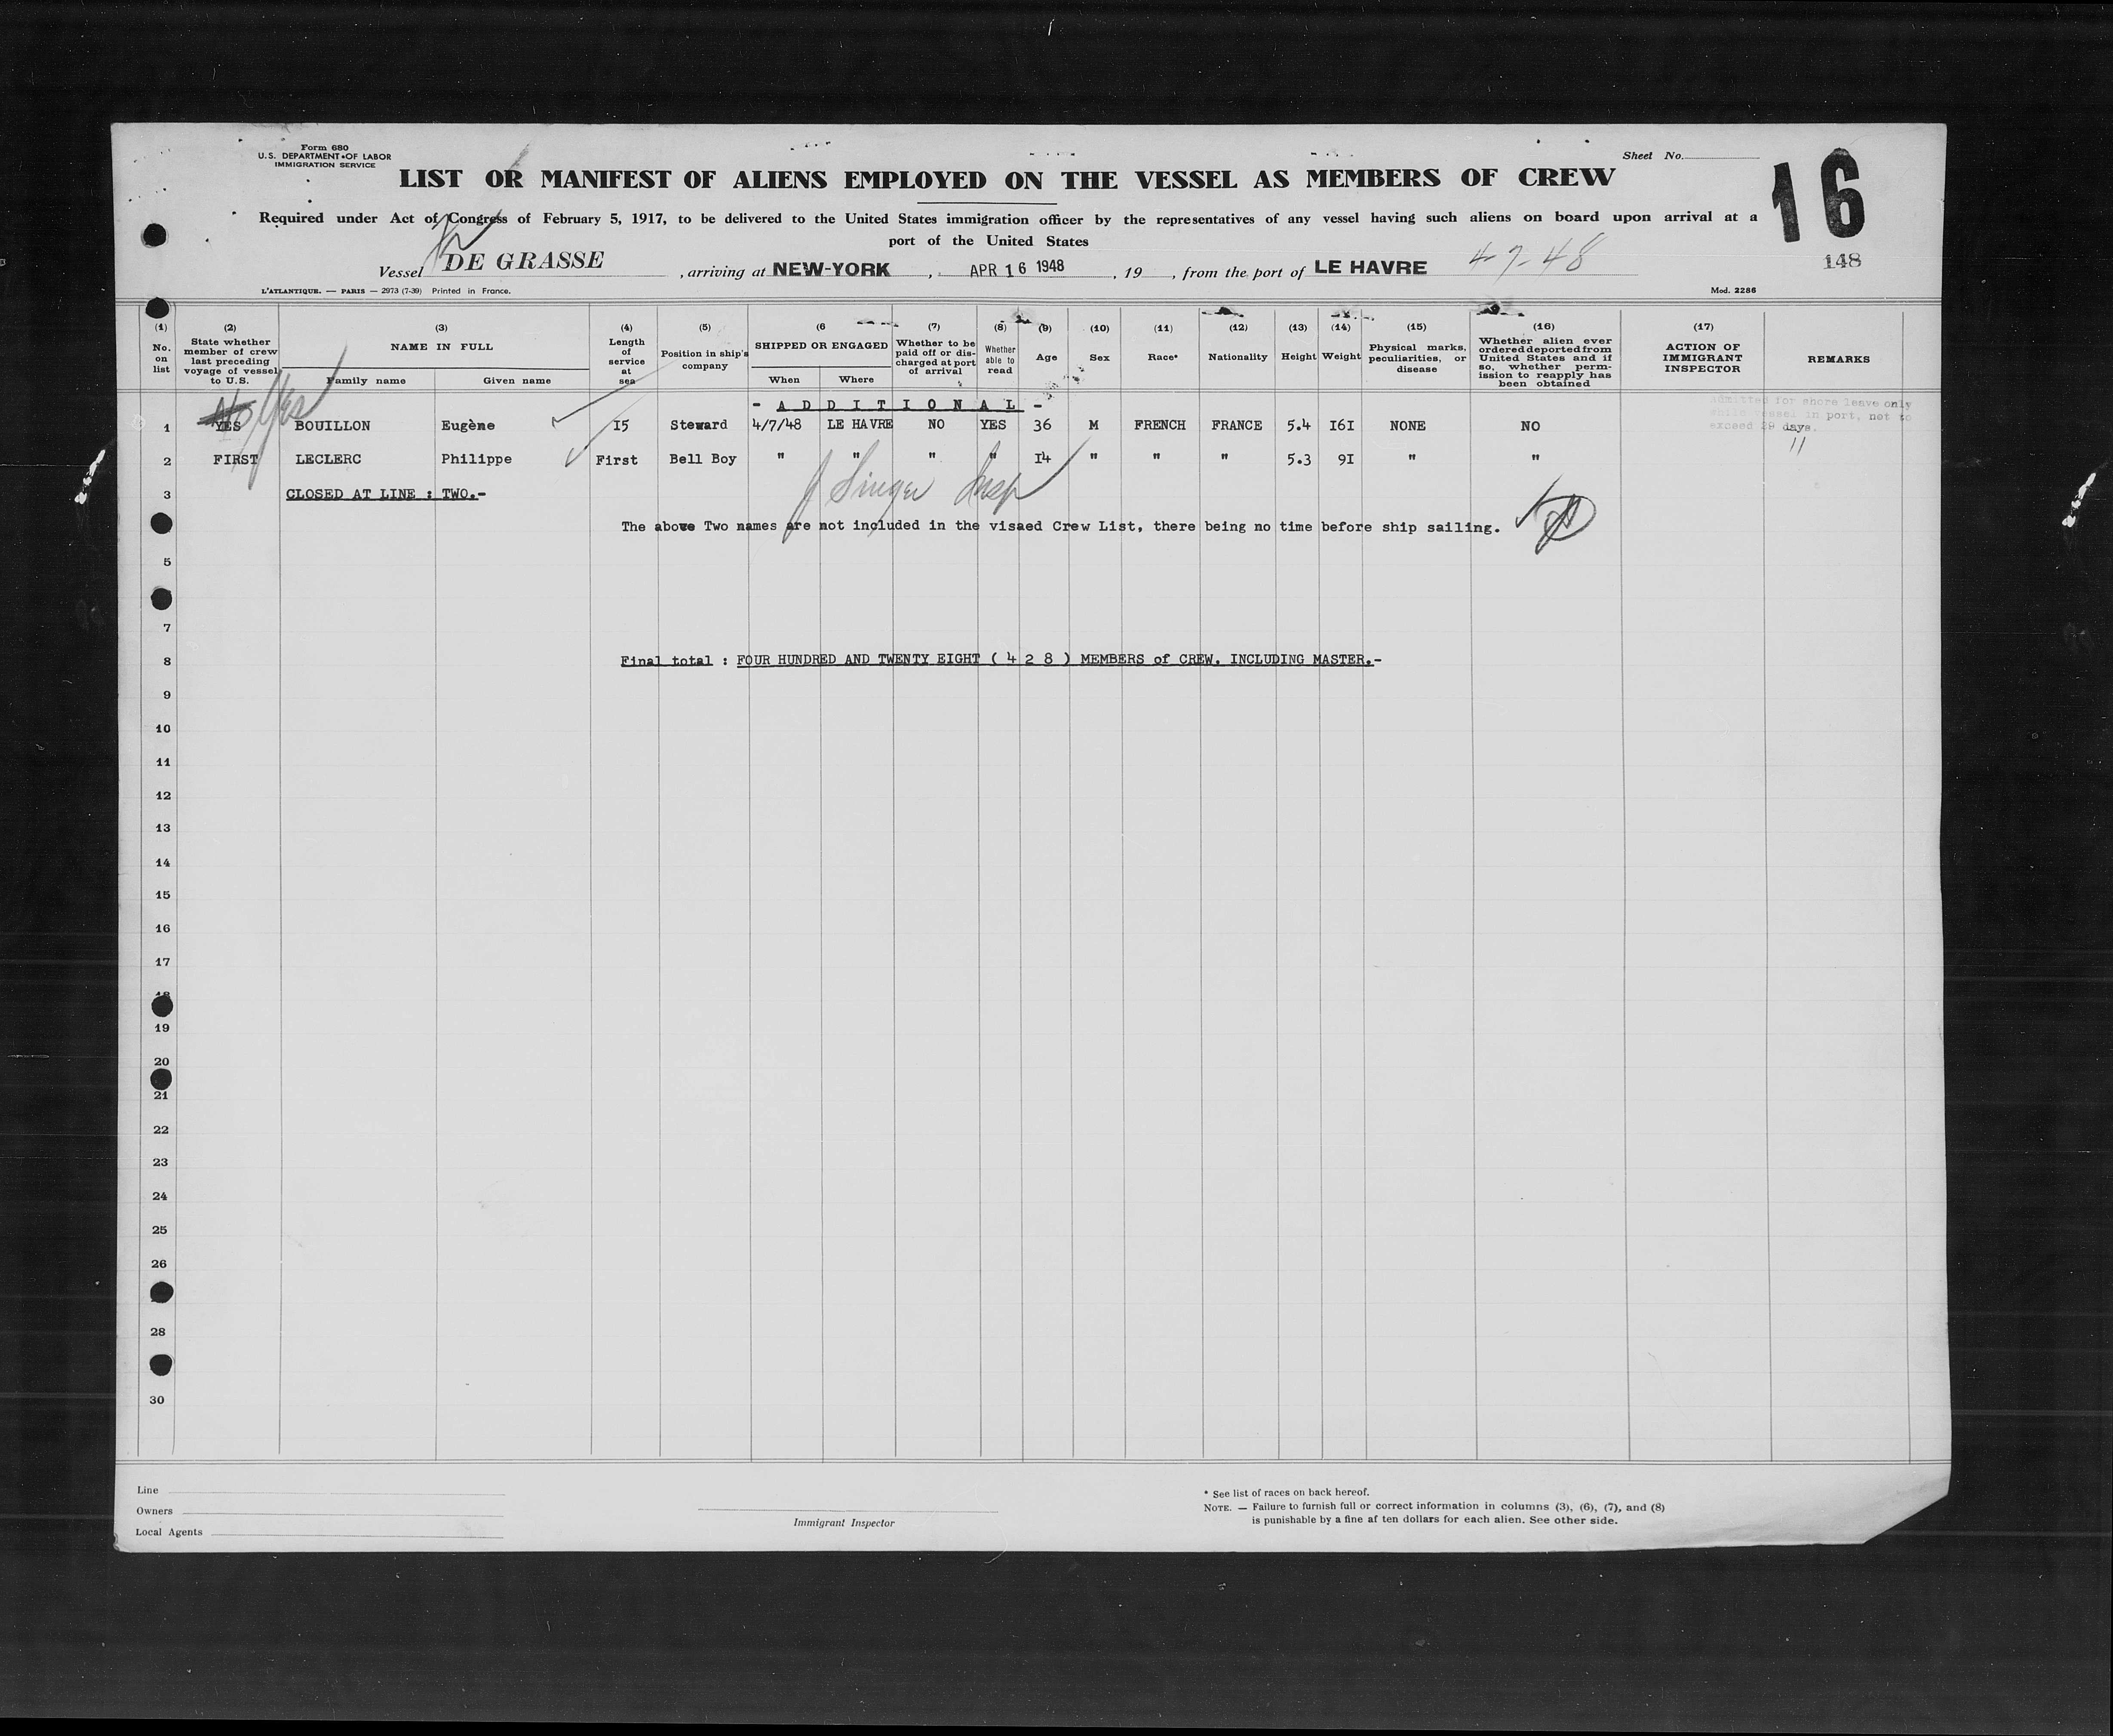 Form 680
U.S. DEPARTMENT OF LABOR
IMMIGRATION SERVICE
Sheet No.
LIST OR MANIFEST OF ALIENS EMPLOYED ON THE VESSEL AS MEMBERS OF CREW
16
Required under Act of Congress of February 5, 1917, to be delivered to the United States immigration officer by the representatives of any vessel having such aliens on board upon arrival at a
port of the United States
Vessel DE GRASSE, arriving at NEW-YORK, APR 16 1948, 19, from the port of LE HAVRE 4-7-48
148
L'ATLANTIQUE. — PARIS — 2973 (7-39) Printed in France.
Mod. 2286
(1) No. on list
(2) State whether member of crew last preceding voyage of vessel to U.S.
(3) NAME IN FULL Family name Given name
(4) Length of service at sea
(5) Position in ship's company
(6 SHIPPED OR ENGAGED When Where
(7) Whether to be paid off or discharged at port of arrival
(8) Whether able to read
(9) Age
(10) Sex
(11) Race*
(12) Nationality
(13) Height
(14) Weight
(15) Physical marks, peculiarities, or disease
(16) Whether alien ever ordered deported from United States and if so, whether permission to reapply has been obtained
(17) ACTION OF IMMIGRANT INSPECTOR
REMARKS
- A D D I T I O N A L -
No Yes
Admitted for shore leave only
while vessel in port, not to
exceed 29 days.
1 YES BOUILLON Eugène I5 Steward 4/7/48 LE HAVRE NO YES 36 M FRENCH FRANCE 5.4 I6I NONE NO
2 FIRST LECLERC Philippe First Bell Boy " " " " I4 " " " 5.3 9I " " "
3 CLOSED AT LINE : TWO.-
J Singer Insp
The above Two names are not included in the visaed Crew List, there being no time before ship sailing.
5
7
8 Final total : FOUR HUNDRED AND TWENTY EIGHT ( 4 2 8 ) MEMBERS of CREW. INCLUDING MASTER.-
9
10
11
12
13
14
15
16
17
18
19
20
21
22
23
24
25
26
28
30
Line
Owners
Local Agents
Immigrant Inspector
* See list of races on back hereof.
NOTE. — Failure to furnish full or correct information in columns (3), (6), (7), and (8)
is punishable by a fine af ten dollars for each alien. See other side.